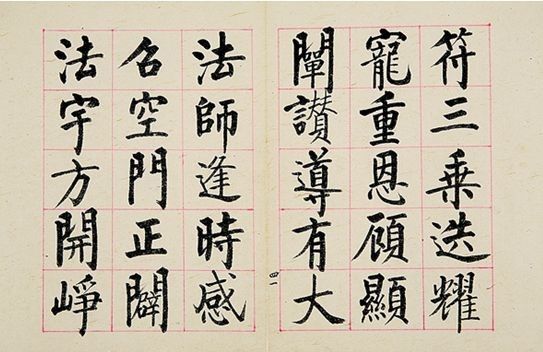 符三乗迭耀
寵重恩顧顯
闡讃導有大
法師逢時感
召空門正闢
法宇方開崢
四一